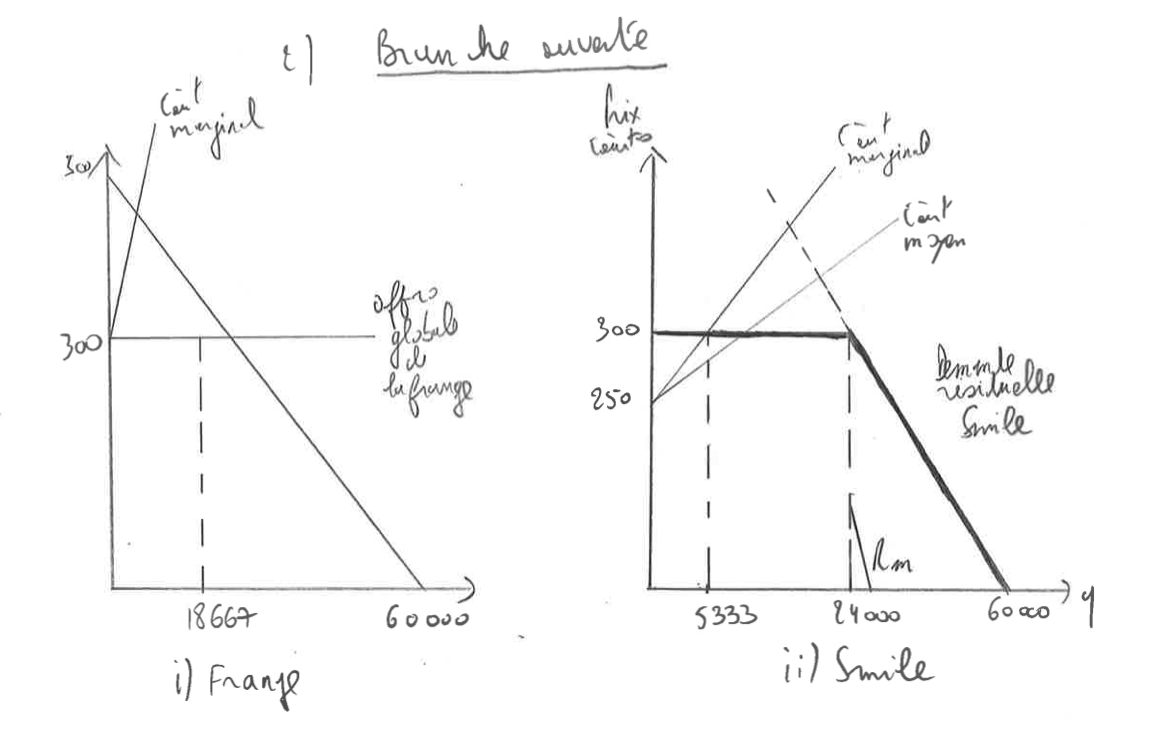 Branche ouverte
Coût
marginal
300
offre
globale
de
la frange
18667
60000
i) Frange
Prix
Coûts
Coût
marginal
Coût
moyen
300
250
Demande
résiduelle
Smile
Rm
5333
24000
60000
q
ii) Smile